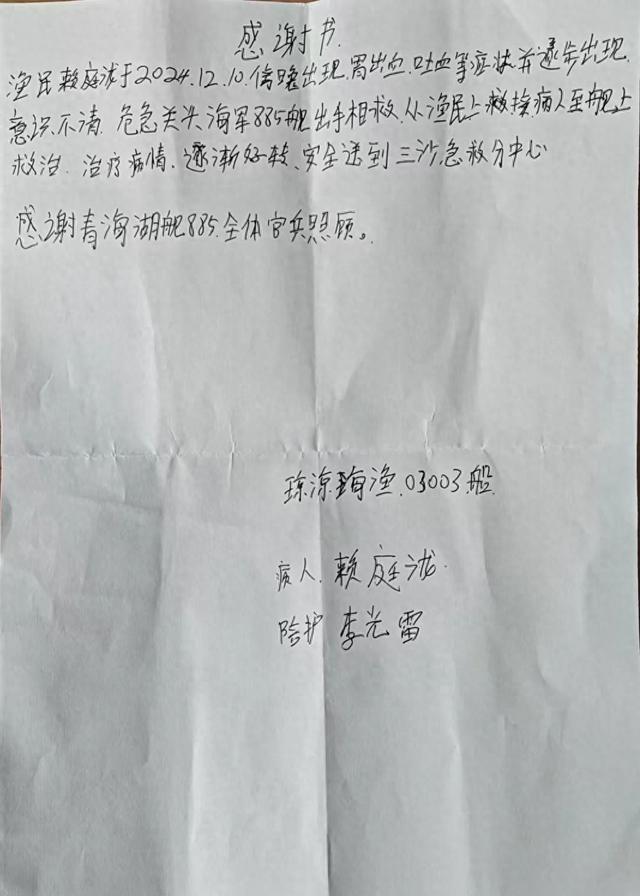 感谢书.
渔民赖庭泷于2024.12.10.傍晚出现.胃出血.吐血等症状并逐步出现.
意识不清.危急关头海军885舰出手相救.从渔民上救援病人至舰上
救治.治疗病情.逐渐好转、安全送到三沙急救分中心
感谢青海湖舰885.全体官兵照顾。
琼琼海渔.03003.船
病人.赖庭泷.
陪护 李光雷